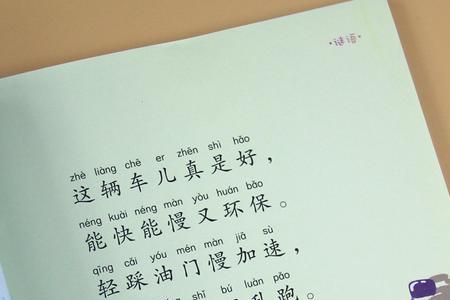 ·谜语·
zhè liàng chē er zhēn shì hǎo
这辆车儿真是好，
néng kuài néng màn yòu huán bǎo
能快能慢又环保。
qīng cǎi yóu mén màn jiā sù
轻踩油门慢加速，
shǐ bú luàn pǎo
乱跑。